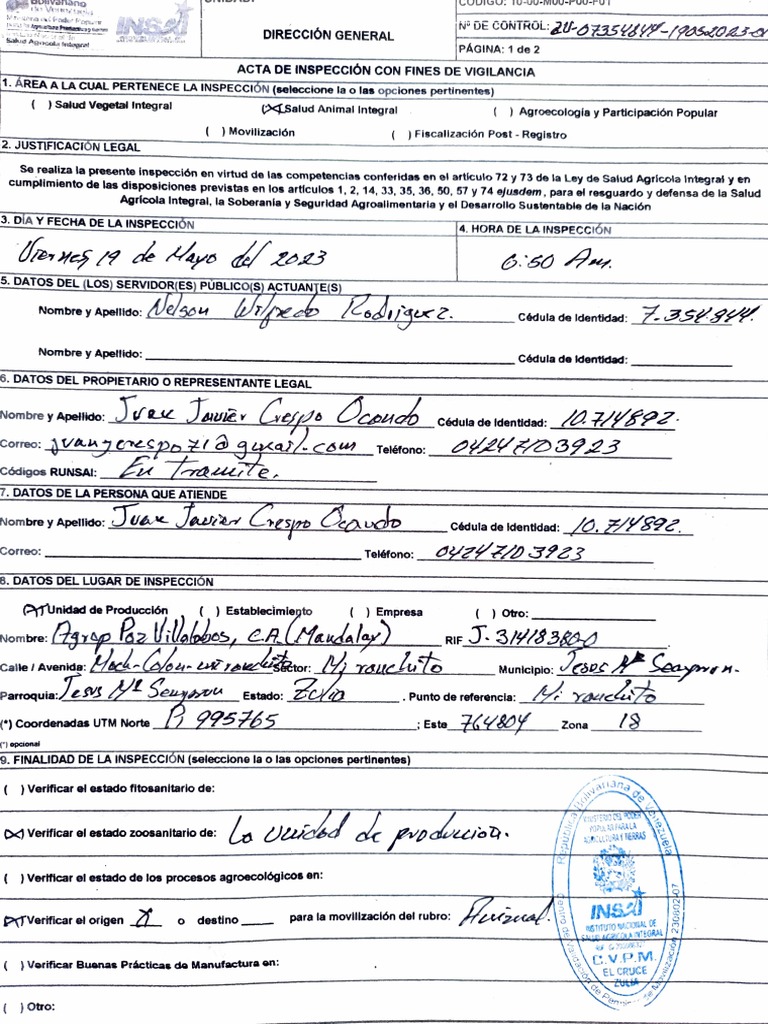 Bolivariano
de Venezuela
INSAI
Salud Agrícola Integral
DIRECCIÓN GENERAL
CÓDIGO: 10-00-M00-P00-F01
Nº DE CONTROL: 20-07354844-19052023-01
PÁGINA: 1 de 2
ACTA DE INSPECCIÓN CON FINES DE VIGILANCIA
1. ÁREA A LA CUAL PERTENECE LA INSPECCIÓN (seleccione la o las opciones pertinentes)
( ) Salud Vegetal Integral (X) Salud Animal Integral ( ) Agroecología y Participación Popular
( ) Movilización ( ) Fiscalización Post - Registro
2. JUSTIFICACIÓN LEGAL
Se realiza la presente inspección en virtud de las competencias conferidas en el artículo 72 y 73 de la Ley de Salud Agrícola Integral y en
cumplimiento de las disposiciones previstas en los artículos 1, 2, 14, 33, 35, 36, 50, 57 y 74 ejusdem, para el resguardo y defensa de la Salud
Agrícola Integral, la Soberanía y Seguridad Agroalimentaria y el Desarrollo Sustentable de la Nación
3. DÍA Y FECHA DE LA INSPECCIÓN 4. HORA DE LA INSPECCIÓN
Viernes 19 de Mayo del 2023 6:50 Am.
5. DATOS DEL (LOS) SERVIDOR(ES) PÚBLICO(S) ACTUANTE(S)
Nombre y Apellido: Nelson Wilfredo Rodriguez. Cédula de Identidad: 7.354.844.
Nombre y Apellido: Cédula de Identidad:
6. DATOS DEL PROPIETARIO O REPRESENTANTE LEGAL
Nombre y Apellido: Juan Javier Crespo Ocando Cédula de Identidad: 10.714892.
Correo: juanjcrespo71@gmail.com Teléfono: 04247103923
Códigos RUNSAI: En Tramite.
7. DATOS DE LA PERSONA QUE ATIENDE
Nombre y Apellido: Juan Javier Crespo Ocando Cédula de Identidad: 10.714892.
Correo: Teléfono: 04247103923
8. DATOS DEL LUGAR DE INSPECCIÓN
(X) Unidad de Producción ( ) Establecimiento ( ) Empresa ( ) Otro:
Nombre: Agrop Paz Villalobos, C.A. (Mandalay) RIF J-31418380-0
Calle / Avenida: Mach-Colon-mi ranchito Sector: Mi ranchito Municipio: Jesus Mª Semprun.
Parroquia: Jesus Mª Semprun Estado: Zulia . Punto de referencia: Mi ranchito
(*) Coordenadas UTM Norte 995765 ; Este 764804 Zona 18
(*) opcional
9. FINALIDAD DE LA INSPECCIÓN (seleccione la o las opciones pertinentes)
( ) Verificar el estado fitosanitario de:
(X) Verificar el estado zoosanitario de: La unidad de produccion.
( ) Verificar el estado de los procesos agroecológicos en:
(X) Verificar el origen X o destino para la movilización del rubro: Animal.
( ) Verificar Buenas Prácticas de Manufactura en:
( ) Otro:
República Bolivariana de Venezuela
MINISTERIO DEL PODER
POPULAR PARA LA
AGRICULTURA Y TIERRAS
INSAI
INSTITUTO NACIONAL DE
SALUD AGRICOLA INTEGRAL
C.V.P.M.
EL CRUCE
ZULIA